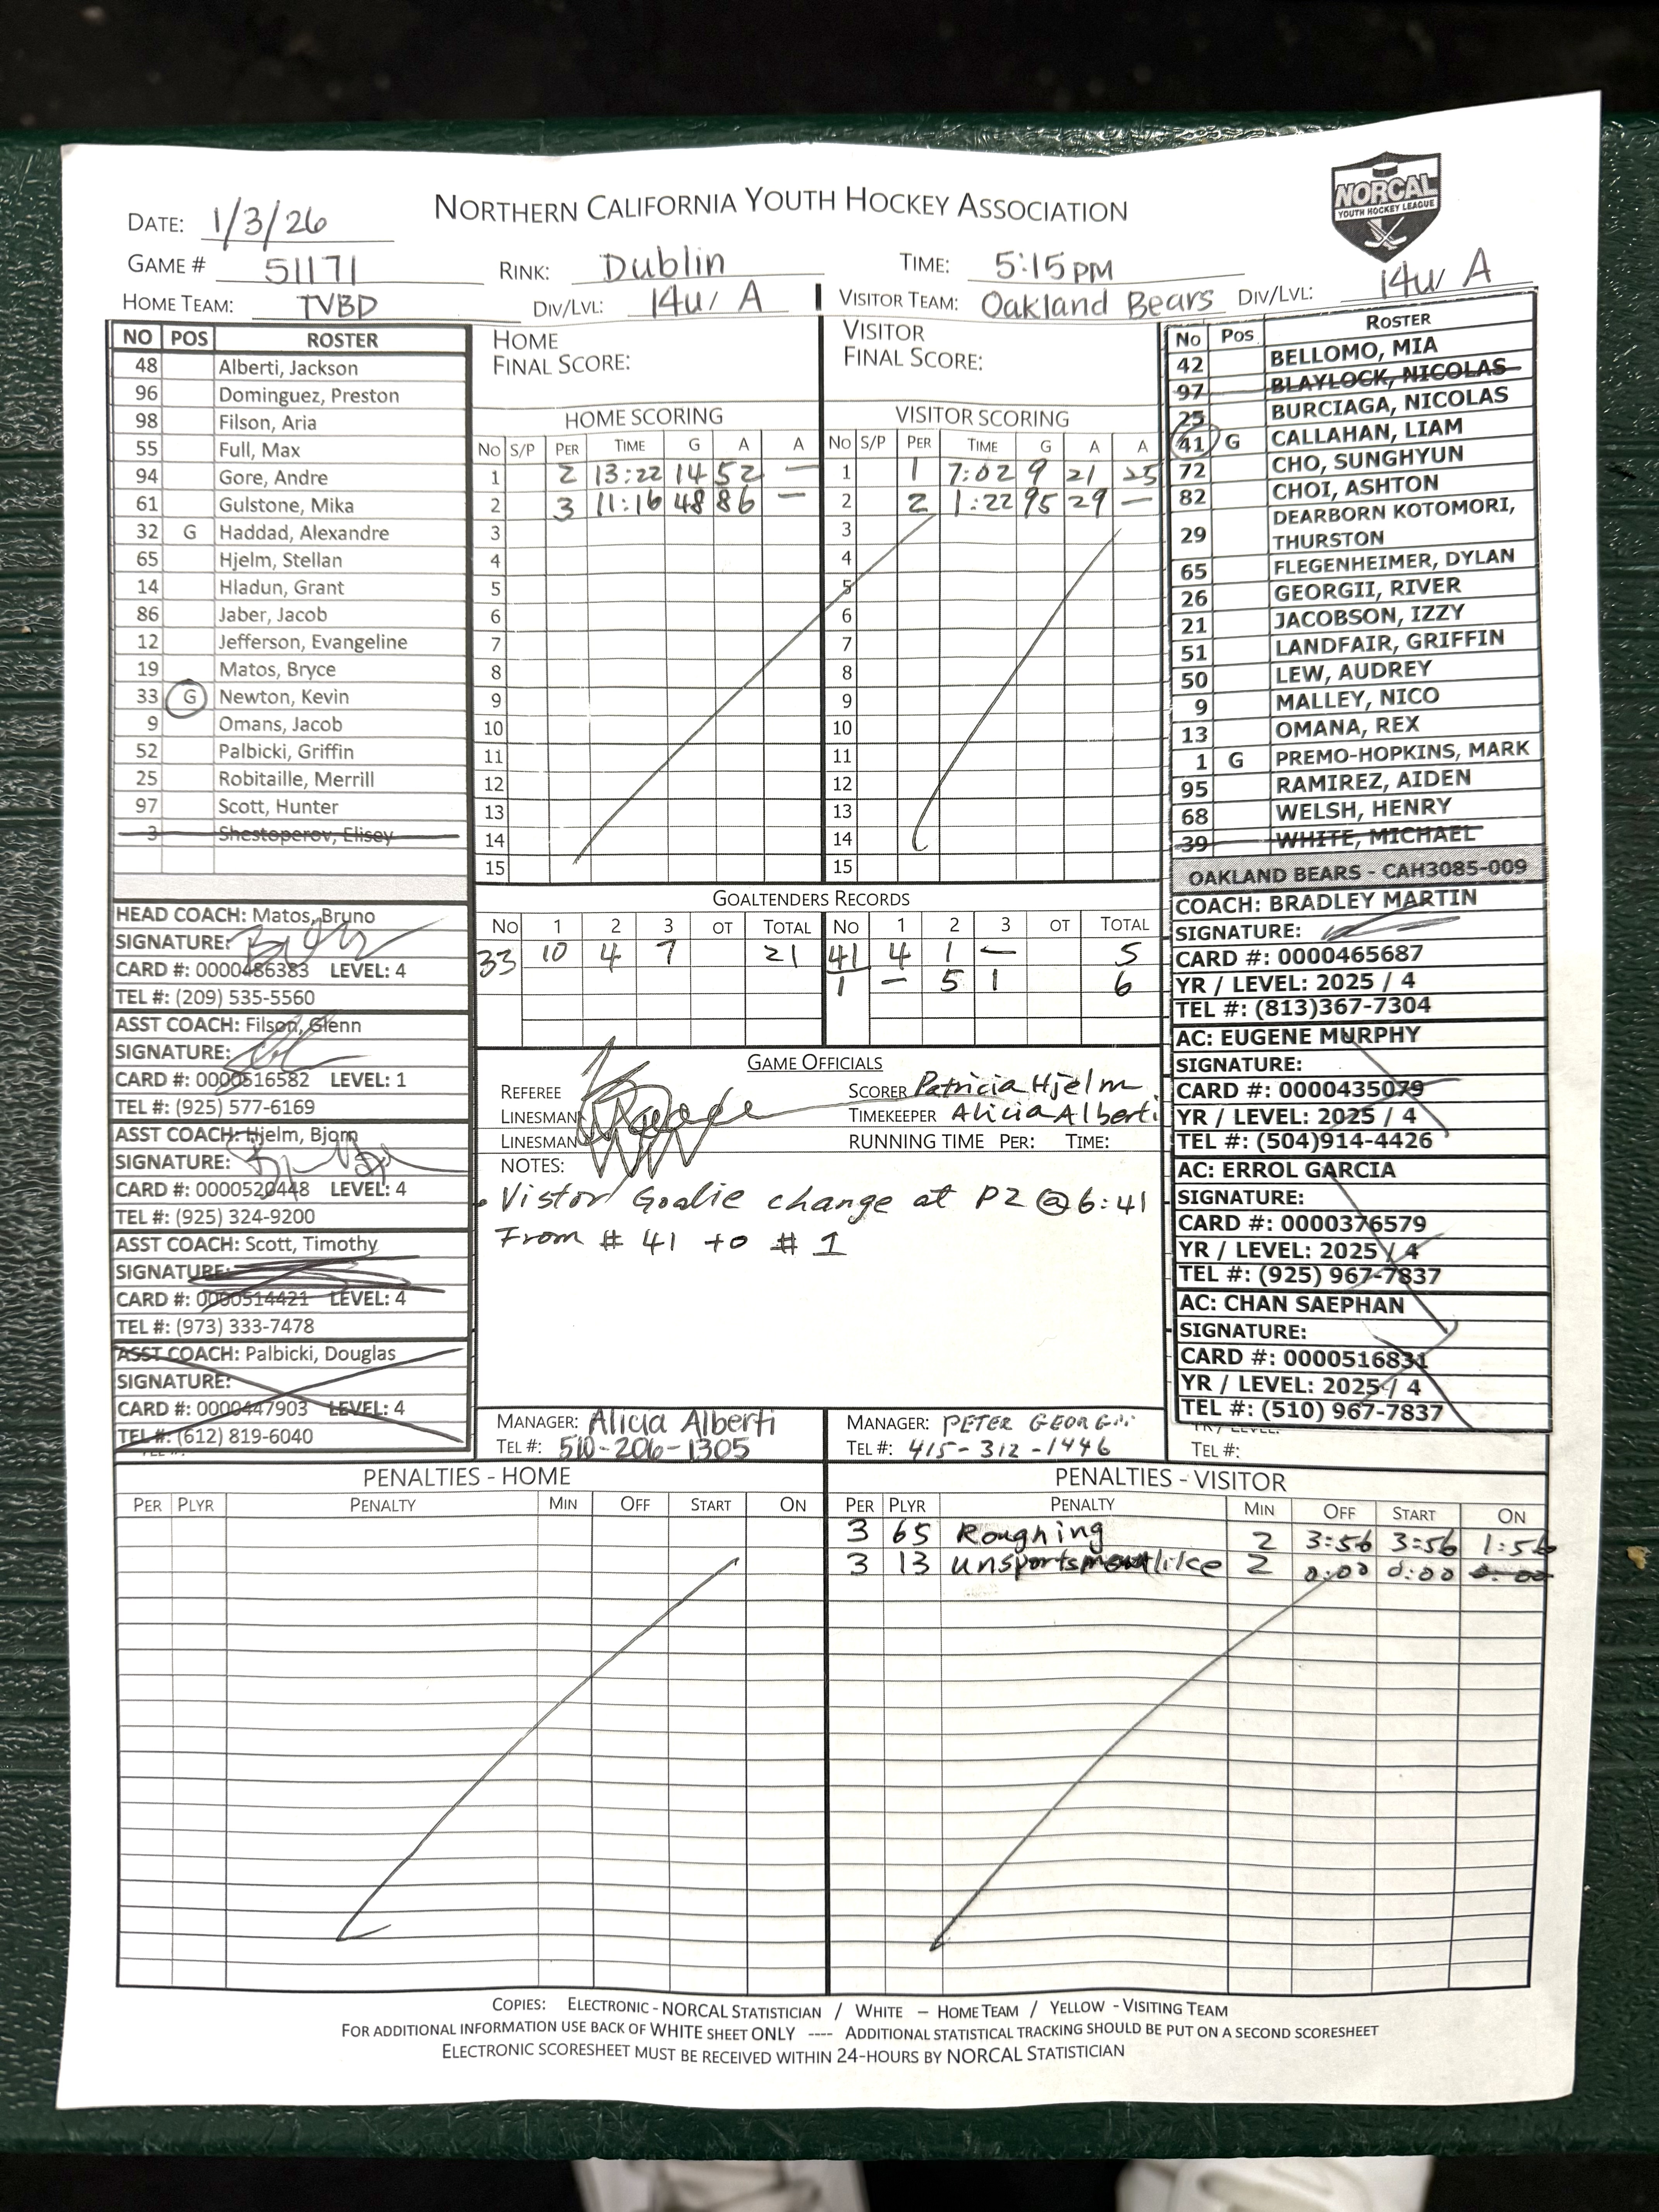 NORTHERN CALIFORNIA YOUTH HOCKEY ASSOCIATION
NORCAL
YOUTH HOCKEY LEAGUE
DATE: 1/3/26
GAME # 51171 RINK: Dublin TIME: 5:15PM
HOME TEAM: TVBD DIV/LVL: 14u/ A VISITOR TEAM: Oakland Bears DIV/LVL: 14u/ A
NO POS ROSTER
48 Alberti, Jackson
96 Dominguez, Preston
98 Filson, Aria
55 Full, Max
94 Gore, Andre
61 Gulstone, Mika
32 G Haddad, Alexandre
65 Hjelm, Stellan
14 Hladun, Grant
86 Jaber, Jacob
12 Jefferson, Evangeline
19 Matos, Bryce
33 G Newton, Kevin
9 Omans, Jacob
52 Palbicki, Griffin
25 Robitaille, Merrill
97 Scott, Hunter
3 Shestoperov, Elisey
HEAD COACH: Matos, Bruno
SIGNATURE:
CARD #: 0000486383 LEVEL: 4
TEL #: (209) 535-5560
ASST COACH: Filson, Glenn
SIGNATURE:
CARD #: 0000516582 LEVEL: 1
TEL #: (925) 577-6169
ASST COACH: Hjelm, Bjorn
SIGNATURE:
CARD #: 0000520448 LEVEL: 4
TEL #: (925) 324-9200
ASST COACH: Scott, Timothy
SIGNATURE:
CARD #: 0000514421 LEVEL: 4
TEL #: (973) 333-7478
ASST COACH: Palbicki, Douglas
SIGNATURE:
CARD #: 0000447903 LEVEL: 4
TEL #: (612) 819-6040
HOME
FINAL SCORE:
HOME SCORING
NO S/P PER TIME G A A
1 2 13:22 14 52 —
2 3 11:16 48 86 —
3
4
5
6
7
8
9
10
11
12
13
14
15
VISITOR
FINAL SCORE:
VISITOR SCORING
NO S/P PER TIME G A A
1 1 7:02 9 21 25
2 2 1:22 95 29 —
3
4
5
6
7
8
9
10
11
12
13
14
15
GOALTENDERS RECORDS
NO 1 2 3 OT TOTAL NO 1 2 3 OT TOTAL
33 10 4 7 21 41 4 1 — 5
1 — 5 1 6
GAME OFFICIALS
REFEREE SCORER Patricia Hjelm
LINESMAN TIMEKEEPER Alicia Alberti
LINESMAN RUNNING TIME PER: TIME:
NOTES:
• Vistor Goalie change at P2 @ 6:41
From # 41 to # 1
MANAGER: Alicia Alberti MANAGER: PETER
TEL #: 510-206-1305 TEL #: 415-312-1446
No Pos ROSTER
42 BELLOMO, MIA
97 BLAYLOCK, NICOLAS
25 BURCIAGA, NICOLAS
41 G CALLAHAN, LIAM
72 CHO, SUNGHYUN
82 CHOI, ASHTON
29 DEARBORN KOTOMORI,
THURSTON
65 FLEGENHEIMER, DYLAN
26 GEORGII, RIVER
21 JACOBSON, IZZY
51 LANDFAIR, GRIFFIN
50 LEW, AUDREY
9 MALLEY, NICO
13 OMANA, REX
1 G PREMO-HOPKINS, MARK
95 RAMIREZ, AIDEN
68 WELSH, HENRY
39 WHITE, MICHAEL
OAKLAND BEARS - CAH3085-009
COACH: BRADLEY MARTIN
SIGNATURE:
CARD #: 0000465687
YR / LEVEL: 2025 / 4
TEL #: (813)367-7304
AC: EUGENE MURPHY
SIGNATURE:
CARD #: 0000435079
YR / LEVEL: 2025 / 4
TEL #: (504)914-4426
AC: ERROL GARCIA
SIGNATURE:
CARD #: 0000376579
YR / LEVEL: 2025 / 4
TEL #: (925) 967-7837
AC: CHAN SAEPHAN
SIGNATURE:
CARD #: 0000516831
YR / LEVEL: 2025 / 4
TEL #: (510) 967-7837
TEL #:
PENALTIES - HOME
PER PLYR PENALTY MIN OFF START ON
PENALTIES - VISITOR
PER PLYR PENALTY MIN OFF START ON
3 65 Roughing 2 3:56 3:56 1:56
3 13 unsportsmanlike 2 0:00 0:00 0:00
COPIES: ELECTRONIC - NORCAL STATISTICIAN / WHITE – HOME TEAM / YELLOW - VISITING TEAM
FOR ADDITIONAL INFORMATION USE BACK OF WHITE SHEET ONLY ---- ADDITIONAL STATISTICAL TRACKING SHOULD BE PUT ON A SECOND SCORESHEET
ELECTRONIC SCORESHEET MUST BE RECEIVED WITHIN 24-HOURS BY NORCAL STATISTICIAN